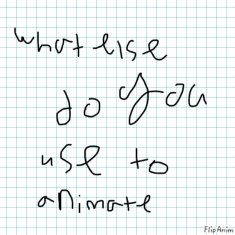 what else
do you
use to
animate
FlipAnim